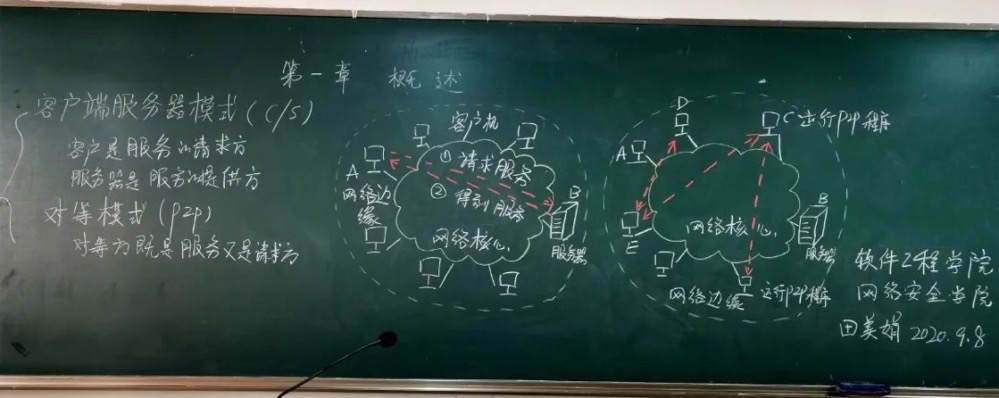 第一章 概述
客户端服务器模式(C/S)
客户是服务的请求方
服务器是服务的提供方
对等模式(P2P)
对等方既是服务又是请求方
客户机
A
①请求服务
②得到服务
网络边缘
网络核心
B
服务器
D
C 运行P2P程序
A
E
网络核心
B
服务器
网络边缘
运行P2P程序
软件工程学院
网络安全学院
田美娟 2020.9.8